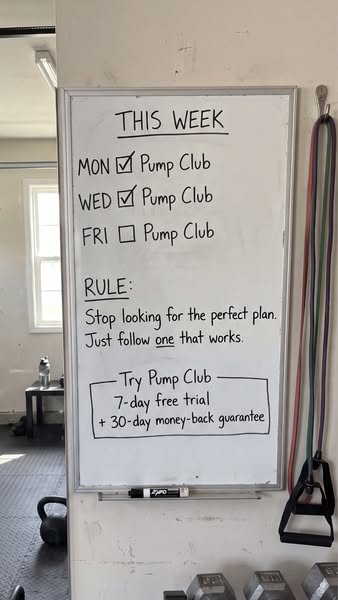 THIS WEEK
MON ☑ Pump Club
WED ☑ Pump Club
FRI ☐ Pump Club
RULE:
Stop looking for the perfect plan.
Just follow one that works.
Try Pump Club
7-day free trial
+ 30-day money-back guarantee
EXPO